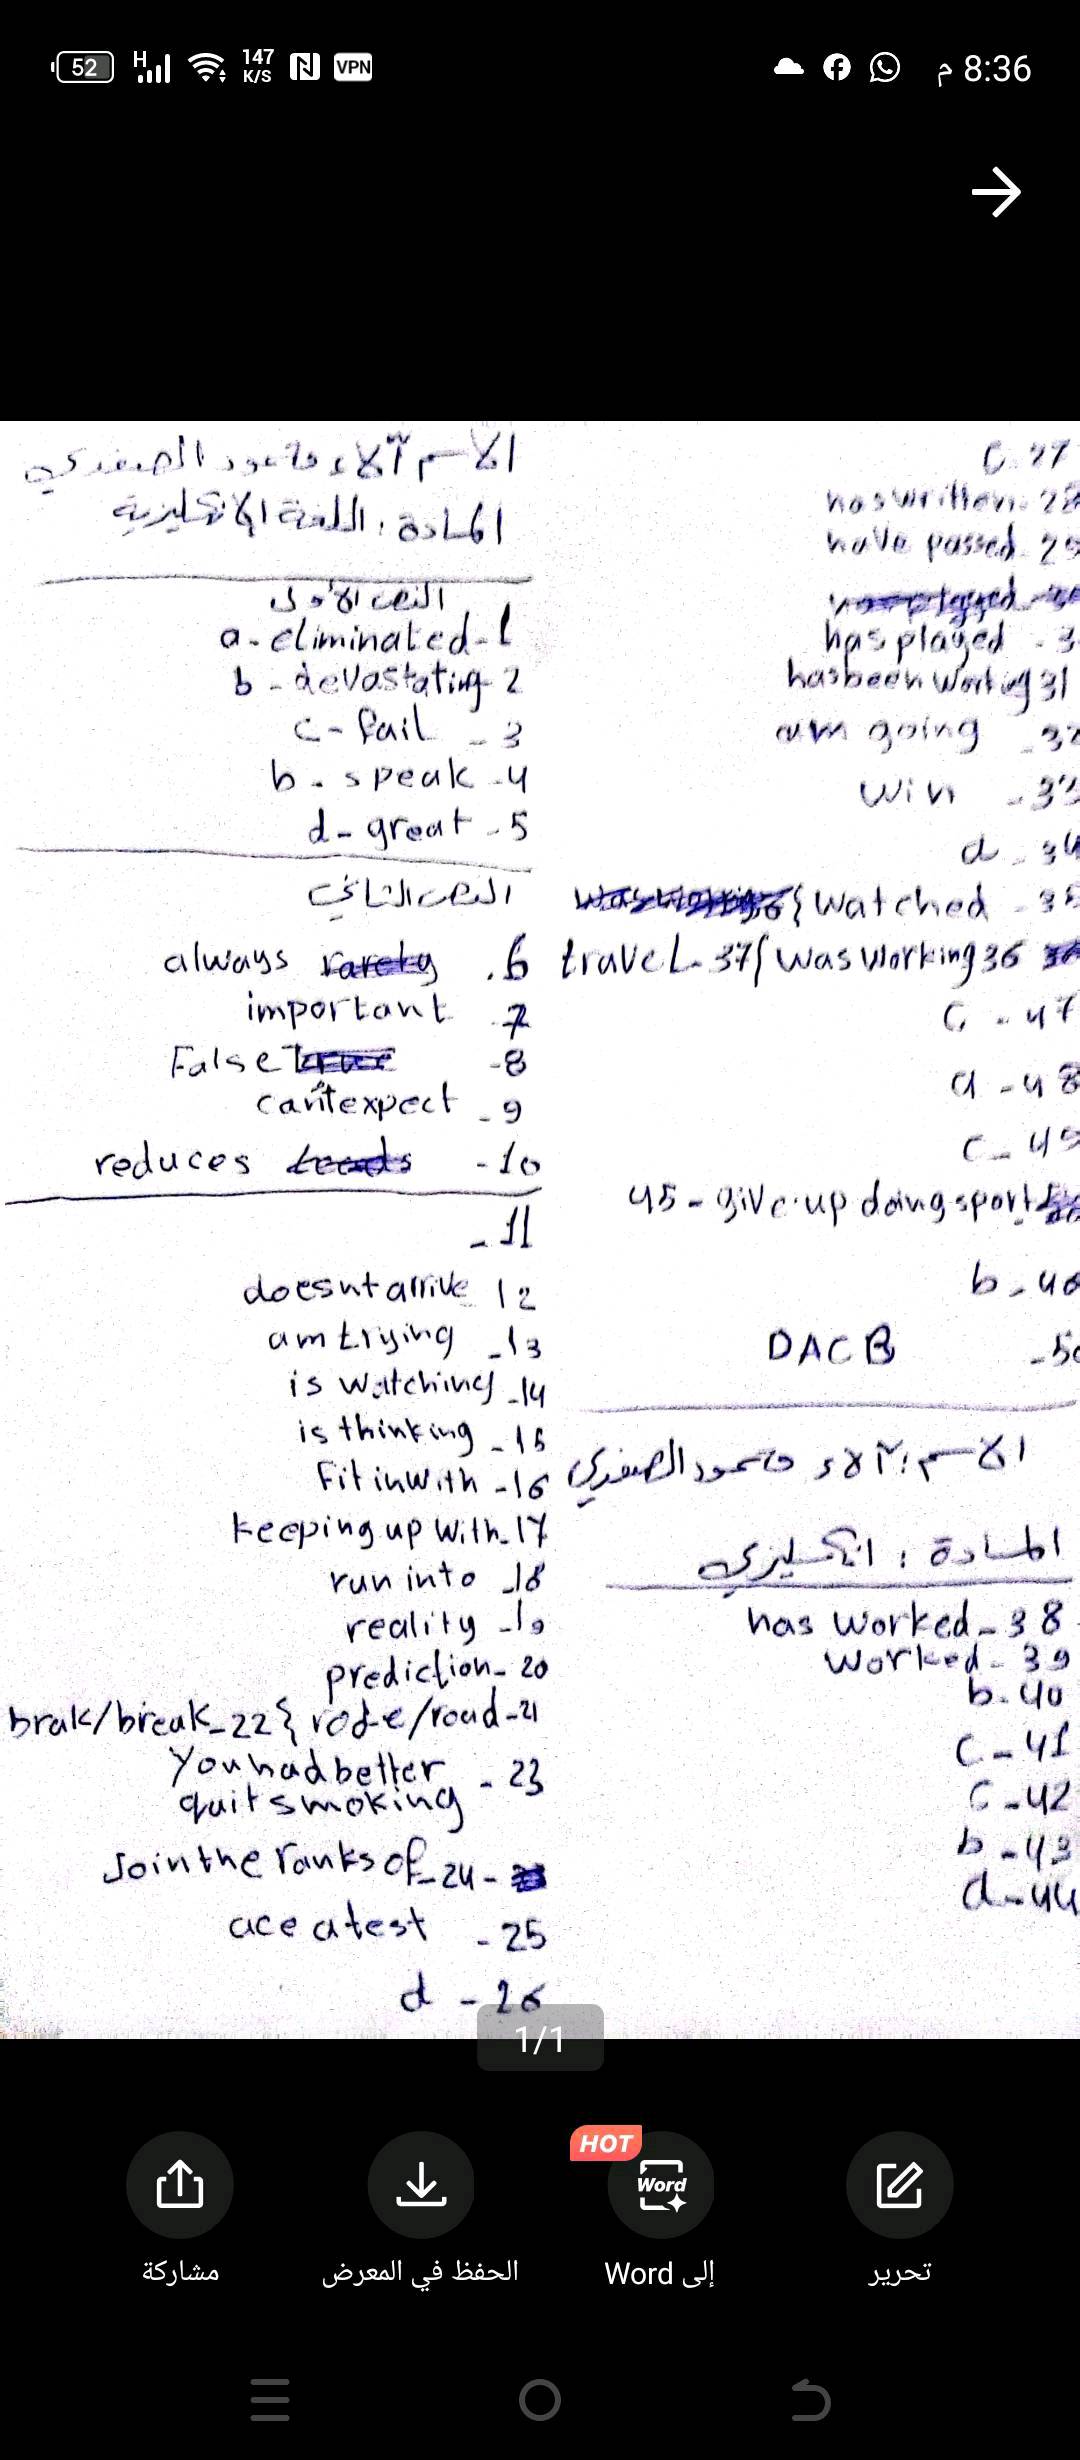 52
H
147
K/S
VPN
8:36 م
الاسم آلاء محمود الصفدي
المادة: اللغة الانكليزية
النص الأول
a- eliminated - 1
b - devastating 2
c - fail - 3
b - speak - 4
d - great - 5
النص الثاني
always rarely . 6
important 7
False True - 8
can't expect - 9
reduces leads - 10
- 11
doesnt arrive 12
am trying - 13
is watching - 14
is thinking - 15
Fit in with - 16
keeping up with - 17
run into - 18
reality - 19
prediction - 20
brak/break - 22 { rode/road - 21
You had better
quit smoking - 23
Join the ranks of - 24 -
ace a test - 25
d - 26
C - 27
has written - 28
have passed - 29
has played - 3
has been working 31
am going - 32
win - 33
d - 34
{ watched - 35
travel - 37 { was working 36
C - 47
a - 48
C - 49
45 - give up doing sport
b - 46
DACB - 50
الاسم: آلاء محمود الصفدي
المادة: انكليزي
has worked - 38
worked - 39
b - 40
C - 41
C - 42
b - 43
d - 44
1/1
HOT
Word
مشاركة
الحفظ في المعرض
إلى Word
تحرير